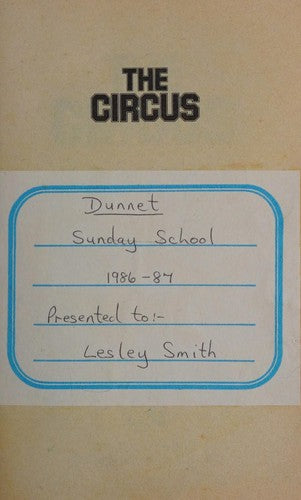 THE
CIRCUS
Dunnet
Sunday School
1986-87
Presented to:-
Lesley Smith